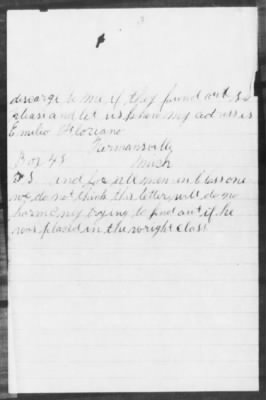 3
discarge to me if they find out so
please and let us know my adress is
Emilio Floriano
Hermansville
Box 43 Mich
P.S. and for all men in Class one
we do not think this letter will do no
harm my trying to find out if he
was placed in the wright Class